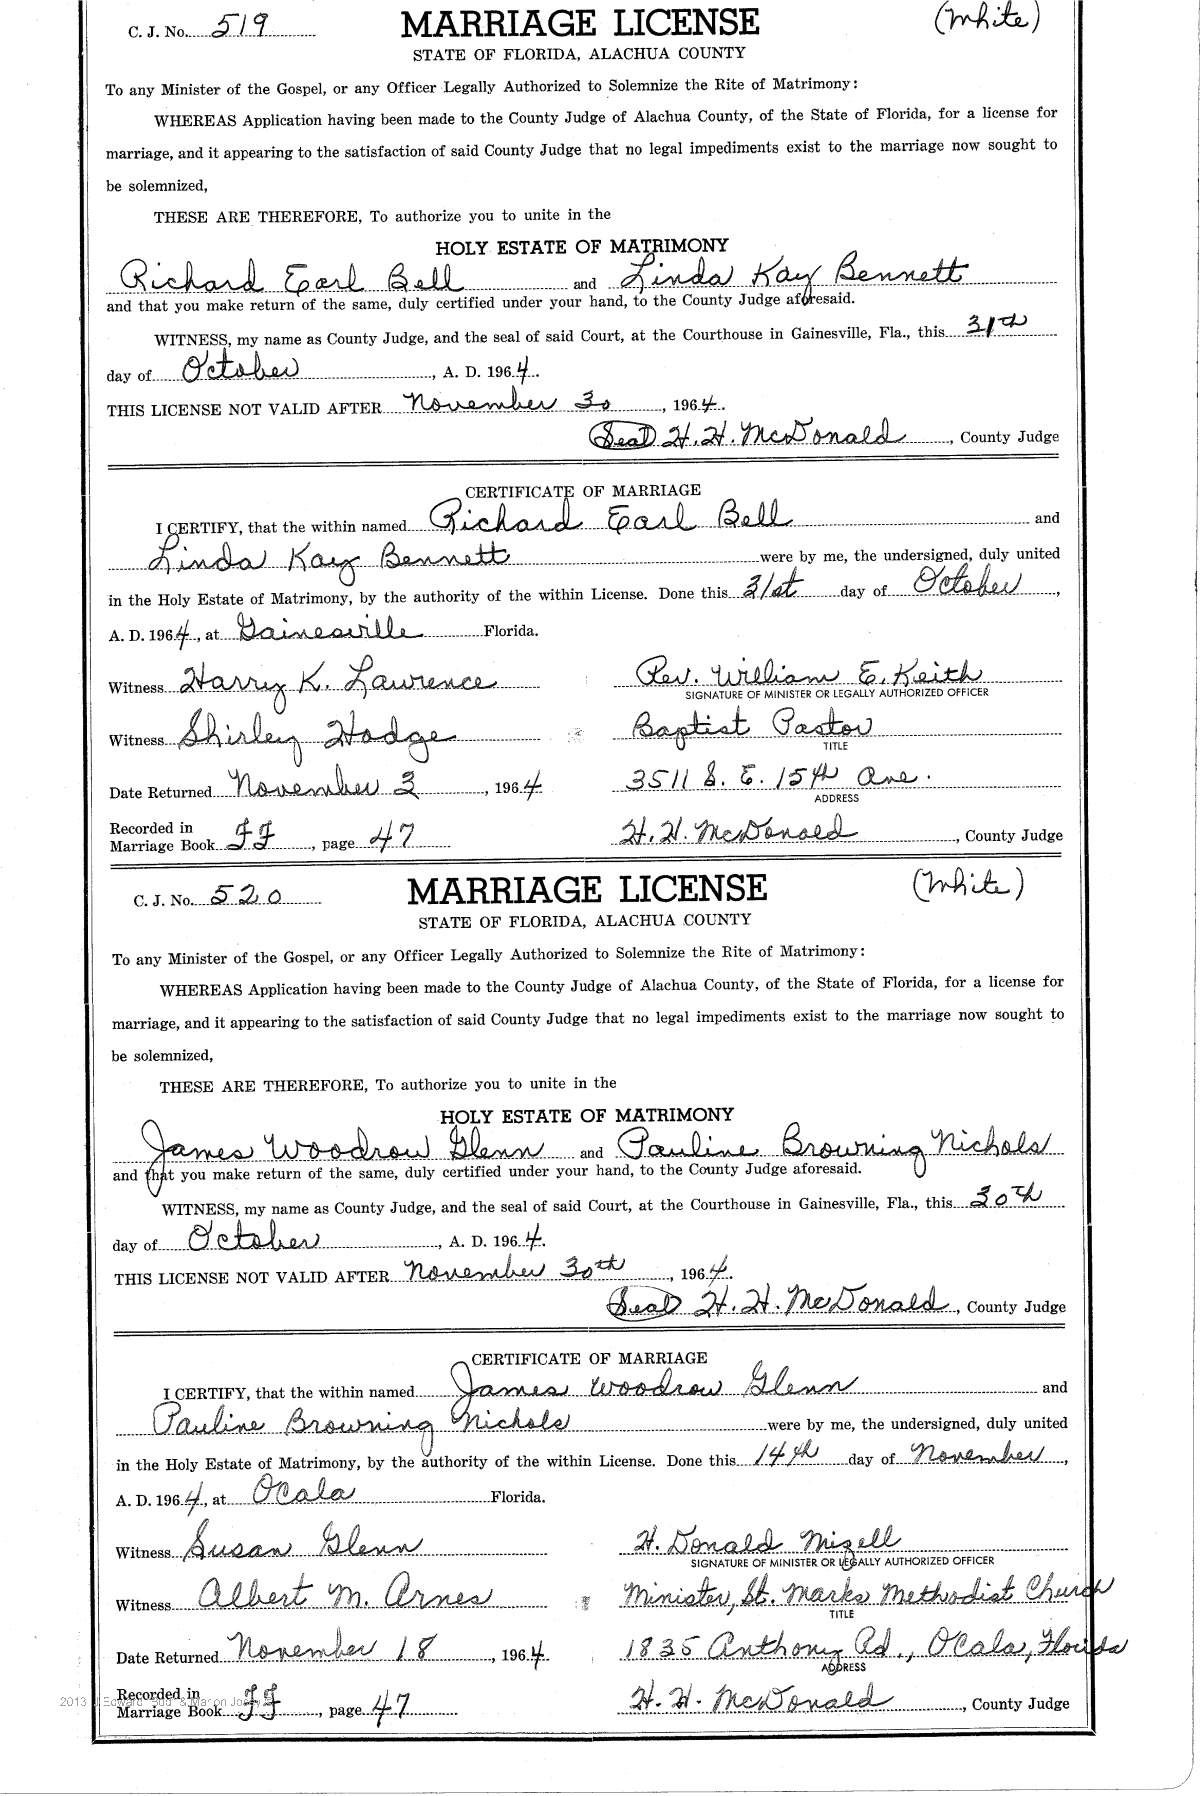 C. J. No. 519 MARRIAGE LICENSE (White)
STATE OF FLORIDA, ALACHUA COUNTY
To any Minister of the Gospel, or any Officer Legally Authorized to Solemnize the Rite of Matrimony:
WHEREAS Application having been made to the County Judge of Alachua County, of the State of Florida, for a license for
marriage, and it appearing to the satisfaction of said County Judge that no legal impediments exist to the marriage now sought to
be solemnized,
THESE ARE THEREFORE, To authorize you to unite in the
HOLY ESTATE OF MATRIMONY
Richard Earl Bell and Linda Kay Bennett
and that you make return of the same, duly certified under your hand, to the County Judge aforesaid.
WITNESS, my name as County Judge, and the seal of said Court, at the Courthouse in Gainesville, Fla., this 31th
day of October, A. D. 1964.
THIS LICENSE NOT VALID AFTER November 30, 1964.
(Seal) H. H. McDonald, County Judge
CERTIFICATE OF MARRIAGE
I CERTIFY, that the within named Richard Earl Bell and
Linda Kay Bennett were by me, the undersigned, duly united
in the Holy Estate of Matrimony, by the authority of the within License. Done this 31st day of October,
A. D. 1964, at Gainesville Florida.
Witness Harry K. Lawrence Rev. William E. Keith
SIGNATURE OF MINISTER OR LEGALLY AUTHORIZED OFFICER
Witness Shirley Hodge Baptist Pastor
TITLE
Date Returned November 3, 1964 3511 S. E. 15th Ave.
ADDRESS
Recorded in
Marriage Book FF, page 47 H. H. McDonald, County Judge
C. J. No. 520 MARRIAGE LICENSE (White)
STATE OF FLORIDA, ALACHUA COUNTY
To any Minister of the Gospel, or any Officer Legally Authorized to Solemnize the Rite of Matrimony:
WHEREAS Application having been made to the County Judge of Alachua County, of the State of Florida, for a license for
marriage, and it appearing to the satisfaction of said County Judge that no legal impediments exist to the marriage now sought to
be solemnized,
THESE ARE THEREFORE, To authorize you to unite in the
HOLY ESTATE OF MATRIMONY
James Woodrow Glenn and Pauline Browning Nichols
and that you make return of the same, duly certified under your hand, to the County Judge aforesaid.
WITNESS, my name as County Judge, and the seal of said Court, at the Courthouse in Gainesville, Fla., this 30th
day of October, A. D. 1964.
THIS LICENSE NOT VALID AFTER November 30th, 1964.
(Seal) H. H. McDonald, County Judge
CERTIFICATE OF MARRIAGE
I CERTIFY, that the within named James Woodrow Glenn and
Pauline Browning Nichols were by me, the undersigned, duly united
in the Holy Estate of Matrimony, by the authority of the within License. Done this 14th day of November,
A. D. 1964, at Ocala Florida.
Witness Susan Glenn H. Donald Mizell
SIGNATURE OF MINISTER OR LEGALLY AUTHORIZED OFFICER
Witness Albert M. Arnes Minister, St. Marks Methodist Church
TITLE
Date Returned November 18, 1964. 1835 Anthony Rd., Ocala, Florida
ADDRESS
Recorded in
Marriage Book FF, page 47 H. H. McDonald, County Judge
2013 J Edward